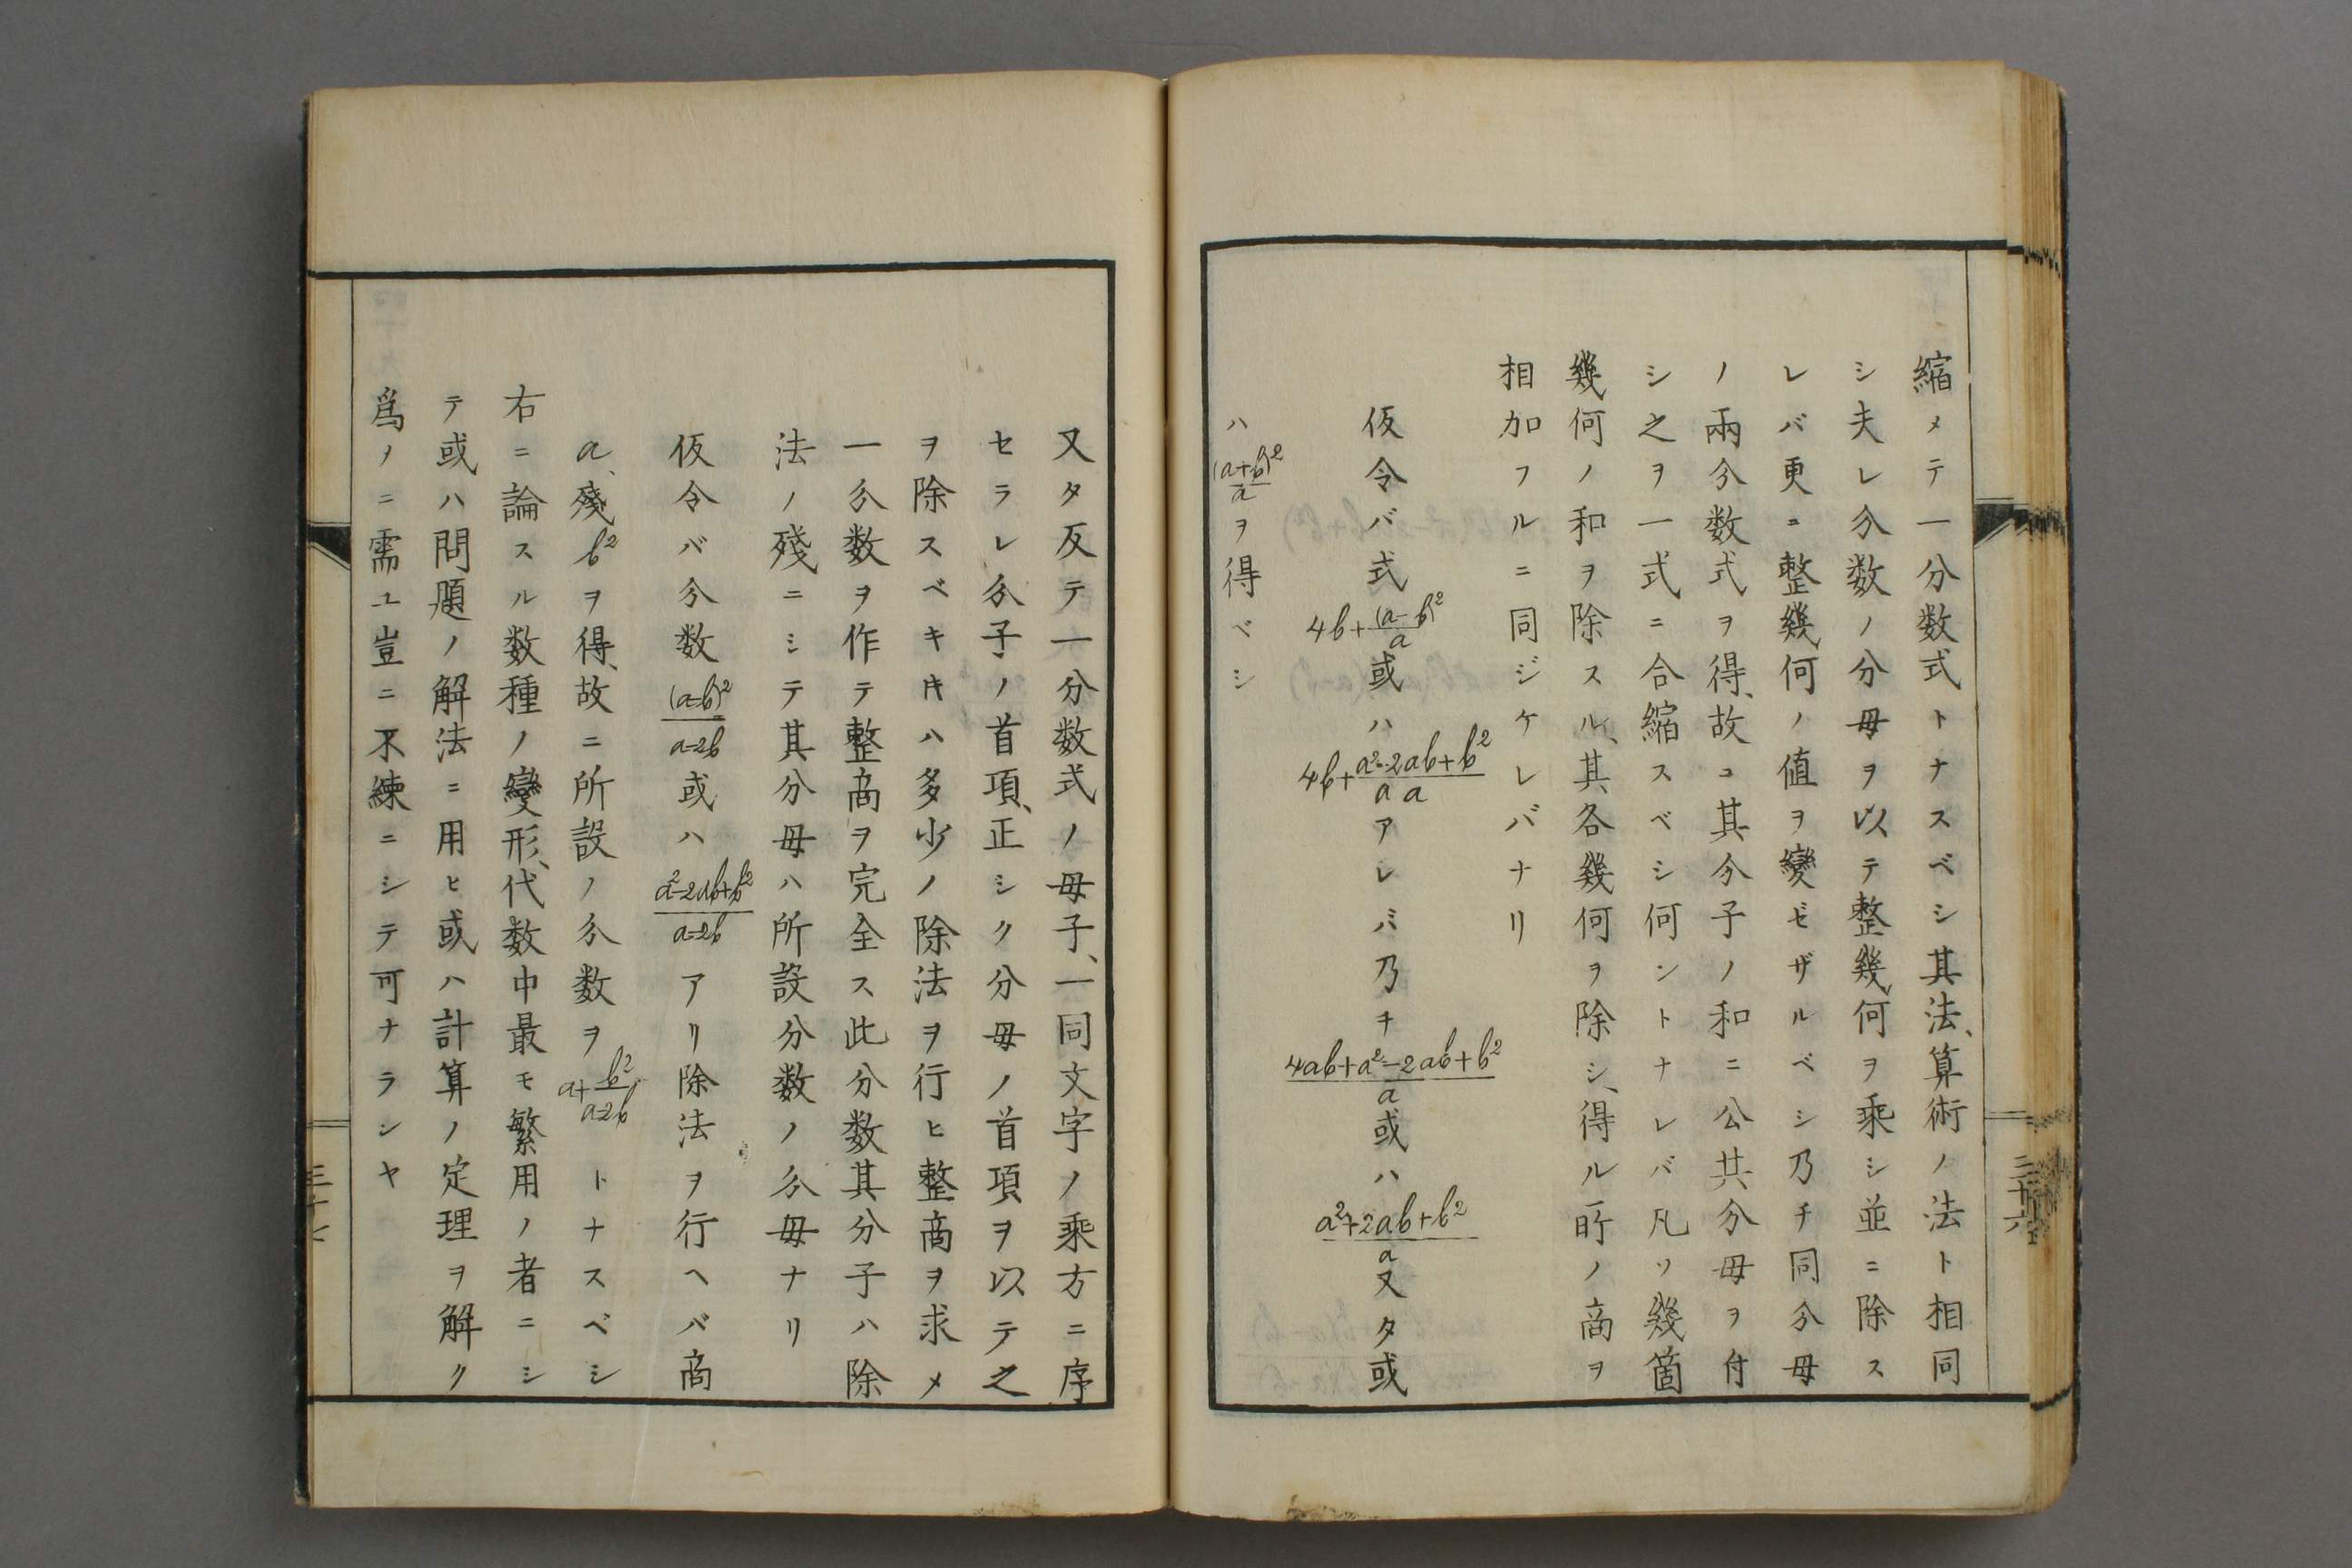 縮メテ一分数式トナスベシ其法、算術ノ法ト相同
シ夫レ分数ノ分母ヲ以テ整幾何ヲ乘シ並ニ除ス
レバ更ニ整幾何ノ値ヲ變ゼザルベシ乃チ同分母
ノ兩分数式ヲ得、故ニ其分子ノ和ニ公共分母ヲ付
シ之ヲ一式ニ合縮スベシ何ントナレバ凡ソ幾箇
幾何ノ和ヲ除スル、其各幾何ヲ除シ、得ル所ノ商ヲ
相加フルニ同ジケレバナリ
仮令バ式 4b+(a-b)²/a 或ハ 4b+(a²-2ab+b²)/a アレバ乃チ (4ab+a²-2ab+b²)/a 或ハ (a²+2ab+b²)/a 又タ或
ハ (a+b)²/a ヲ得ベシ
三十六
又タ反テ一分数式ノ母子、一同文字ノ乘方ニ序
セラレ分子ノ首項、正シク分母ノ首項ヲ以テ之
ヲ除スベキキハ多少ノ除法ヲ行ヒ整商ヲ求メ
一分数ヲ作テ整商ヲ完全ス此分数其分子ハ除
法ノ殘ニシテ其分母ハ所設分数ノ分母ナリ
仮令バ分数 (a-b)²/(a-2b) 或ハ (a²-2ab+b²)/(a-2b) アリ除法ヲ行ヘバ商
a、殘b²ヲ得、故ニ所設ノ分数ヲ a+b²/(a-2b) トナスベシ
右ニ論スル数種ノ變形、代数中最モ繁用ノ者ニシ
テ或ハ問題ノ解法ニ用ヒ或ハ計算ノ定理ヲ解ク
爲ノニ需ユ豈ニ不練ニシテ可ナラシヤ
三十七